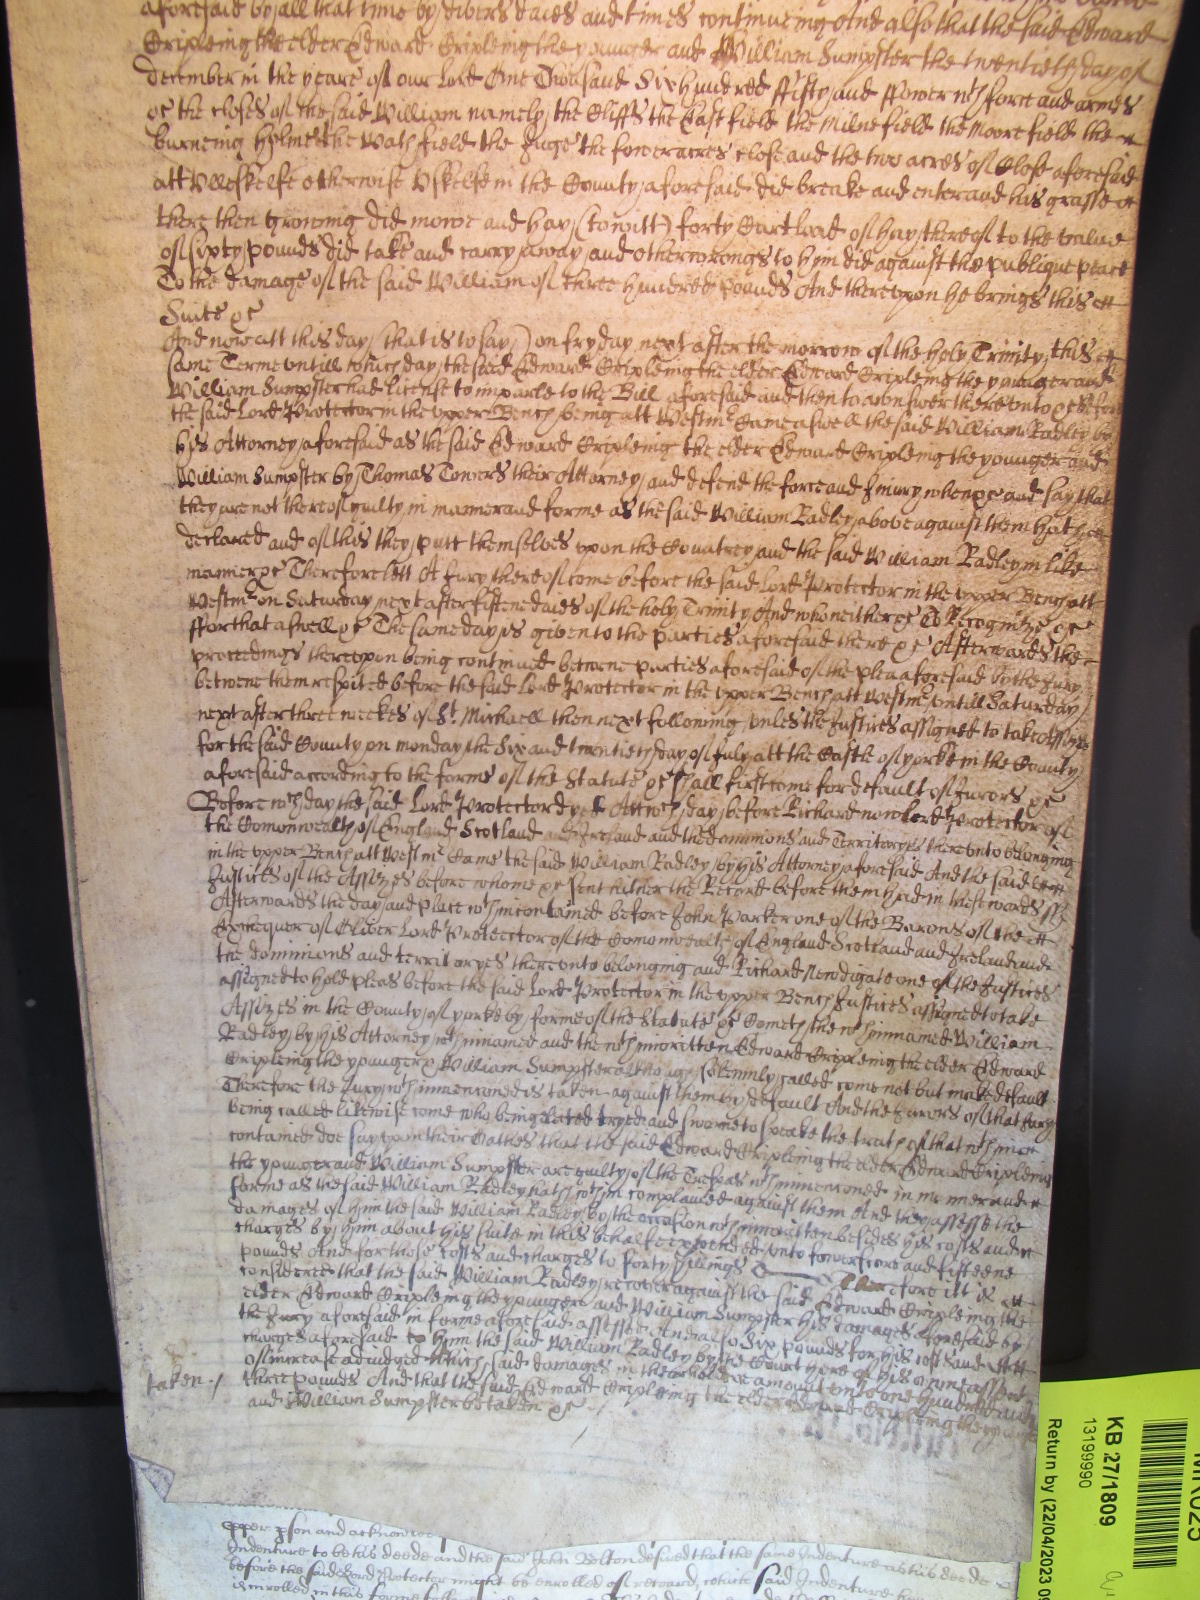 aforesaid by all that time by divers daies and times continuing And also that the said Edward
Cripleing the elder Edward Cripleing the younger and William Sumpster the twentieth day of
december in the yeare of our Lord One Thousand Six hundred ffifty and ffower wth force and armes
&c the closes of the said William namely the Cliffs the East field the Milne field the Moore field the
burneing holmes the Wath field the the fower acres close and the two acres of Close aforesaid
att Ulleskelfe otherwise Uskelfe in the County aforesaid did breake and enter and his grasse
there then growing did mowe and hay (to witt) forty Cart load of hay thereof to the value
of sixty pounds did take and carry away and other wrongs to hym did against the publique peace
To the damage of the said William of three hundred pounds And thereupon he brings this
Suite &c
And now att this day (that is to say) on fryday next after the morrow of the holy Trinity this
same Terme untill which day the said Edward Cripleing the elder Edward Cripleing the younger and
William Sumpster had license to imparle to the Bill aforesaid and then to answer thereunto &c before
the said Lord Protector in the upper Bench being att Westmr Came aswell the said William Radley by
hys Attorney aforesaid as the said Edward Cripleing the elder Edward Cripleing the younger and
William Sumpster by Thomas Towers their Attorney and defend the force and Iniury when &c and say that
they are not thereof guilty in manner and forme as the said William Radley above against them hath
declared and of this they putt themselves upon the Countrey and the said William Radley in like
manner &c Therefore lett A Jury thereof come before the said Lord Protector in the upper Bench att
Westmr on Saturday next after fifteene daies of the holy Trinity And who neither &c To Recognize &c
fforthat aswell &c The same day is given to the parties aforesaid there &c Afterwards the
proceedings thereupon being continued betwene parties aforesaid of the plea aforesaid by the Jury
betwene them respited before the said Lord Protector in the upper Bench att Westmr untill Saturday
next after three weekes of St. Michaell then next following unles the Justices assigned to take Assizes
for the said County on monday the Six and twentieth day of July att the Castle of yorke in the County
aforesaid according to the forme of the Statute &c shall first come for default of Jurors &c
Before wch day the said Lord Protector dyed Att wch day before Richard now Lord Protector of
the Comonwealth of England Scotland and Ireland and the dominions and Territoryes thereunto belonging
in the upper Bench att Westmr Came the said William Radley by his Attorney aforesaid And the said
Justices of the Assizes before whome &c sent hither the Record before them had in these words ss
Afterwards the day and place wthin contained before John Parker one of the Barons of the
Exchequer of Oliver Lord Protector of the Comonwealth of England Scotland and Ireland and
the dominions and territoryes thereunto belonging and Richard Newdigate one of the Justices
assigned to hold pleas before the said Lord Protector in the upper Bench Justices assigned to take
Assizes in the County of yorke by forme of the Statute &c Cometh the wthin named William
Radley by his Attorney wthin named and the wthin written Edward Cripleing the elder Edward
Cripleing the younger & William Sumpster although solemnly called come not but make default
Therefore the Jury wthin mencioned is taken against them by default And the Jurors of that Jury
being called likewise come who being elected tryed and sworne to speake the truth of that wthin
contained doe say upon their Oathes that the said Edward Cripleing the elder Edward Cripleing
the younger and William Sumpster are guilty of the Trespas wthin mencioned in manner and
forme as the said William Radley hath wthin complained against them And they assesse the
damages of hym the said William Radley by the occasion wthin written besides hys costs and
charges by hym about his suite in this behalfe expended unto fowerscore and fifteene
pounds And for those costs and charges to forty shillings Therefore itt is
considered that the said William Radley recover against the said Edward Cripleing the
elder Edward Cripleing the younger and William Sumpster his damages aforesaid by
the Jury aforesaid in forme aforesaid assessed And also Six pounds for his costs and
charges aforesaid to hym the said William Radley by the Court here of his owne assent
of increase adiudged Which said damages in the whole amount unto one hundred and
taken ./ three pounds And that the said Edward Cripleing the elder Edward Cripleing the younger
and William Sumpster be taken &c ./
pper pson and
Indenture to be his deede and the said John Belton desired that the same Indenture as his deede
before the said Lord Protector might be enrolled of record, which said Indenture
is inrolled in this forme
KB 27/1809
13199990
Return by (22/04/2023